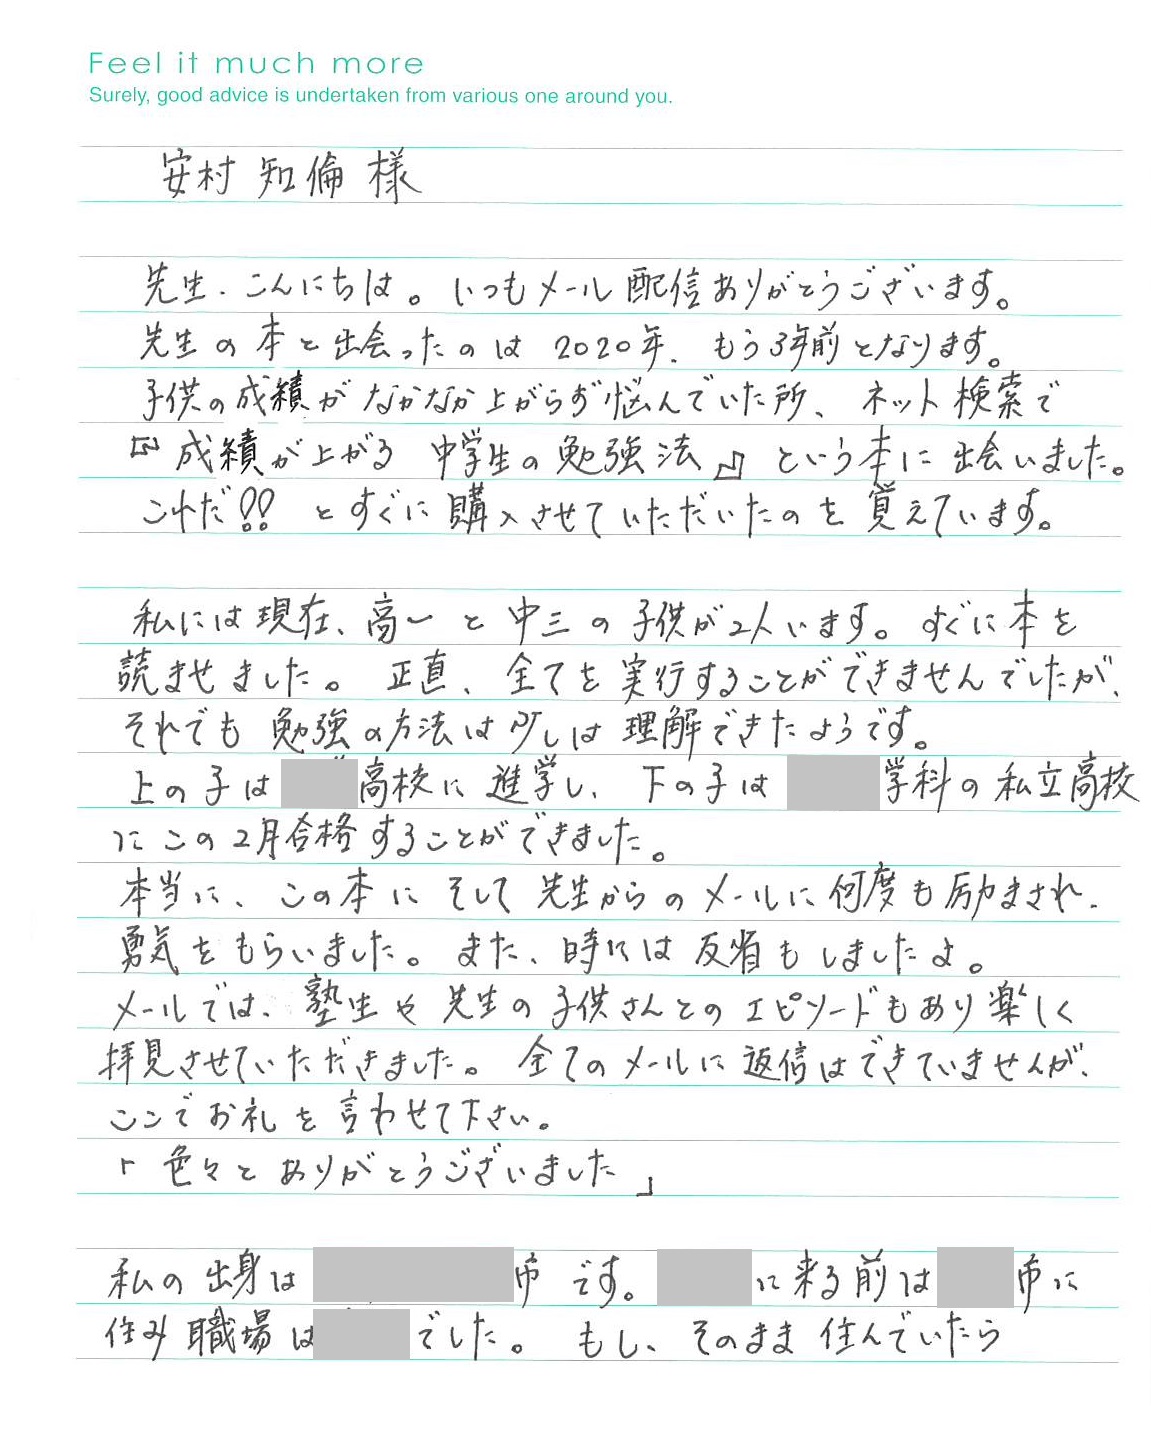 Feel it much more
Surely, good advice is undertaken from various one around you.
安村 知倫 様
先生、こんにちは。いつもメール配信ありがとうございます。
先生の本と出会ったのは2020年、もう3年前となります。
子供の成績がなかなか上がらず悩んでいた所、ネット検索で
『成績が上がる 中学生の勉強法』という本に出会いました。
これだ!! とすぐに購入させていただいたのを覚えています。
私には現在、高一と中三の子供が2人います。すぐに本を
読ませました。正直、全てを実行することができませんでしたが、
それでも勉強の方法は少しは理解できたようです。
上の子は 高校に進学し、下の子は 学科の私立高校
にこの2月合格することができました。
本当に、この本にそして先生からのメールに何度も励まされ、
勇気をもらいました。また、時には反省もしましたよ。
メールでは、塾生や先生の子供さんとのエピソードもあり楽しく
拝見させていただきました。全てのメールに返信はできていませんが、
ここでお礼を言わせて下さい。
「色々とありがとうございました」
私の出身は 市です。 に来る前は 市に
住み職場は でした。もし、そのまま住んでいたら